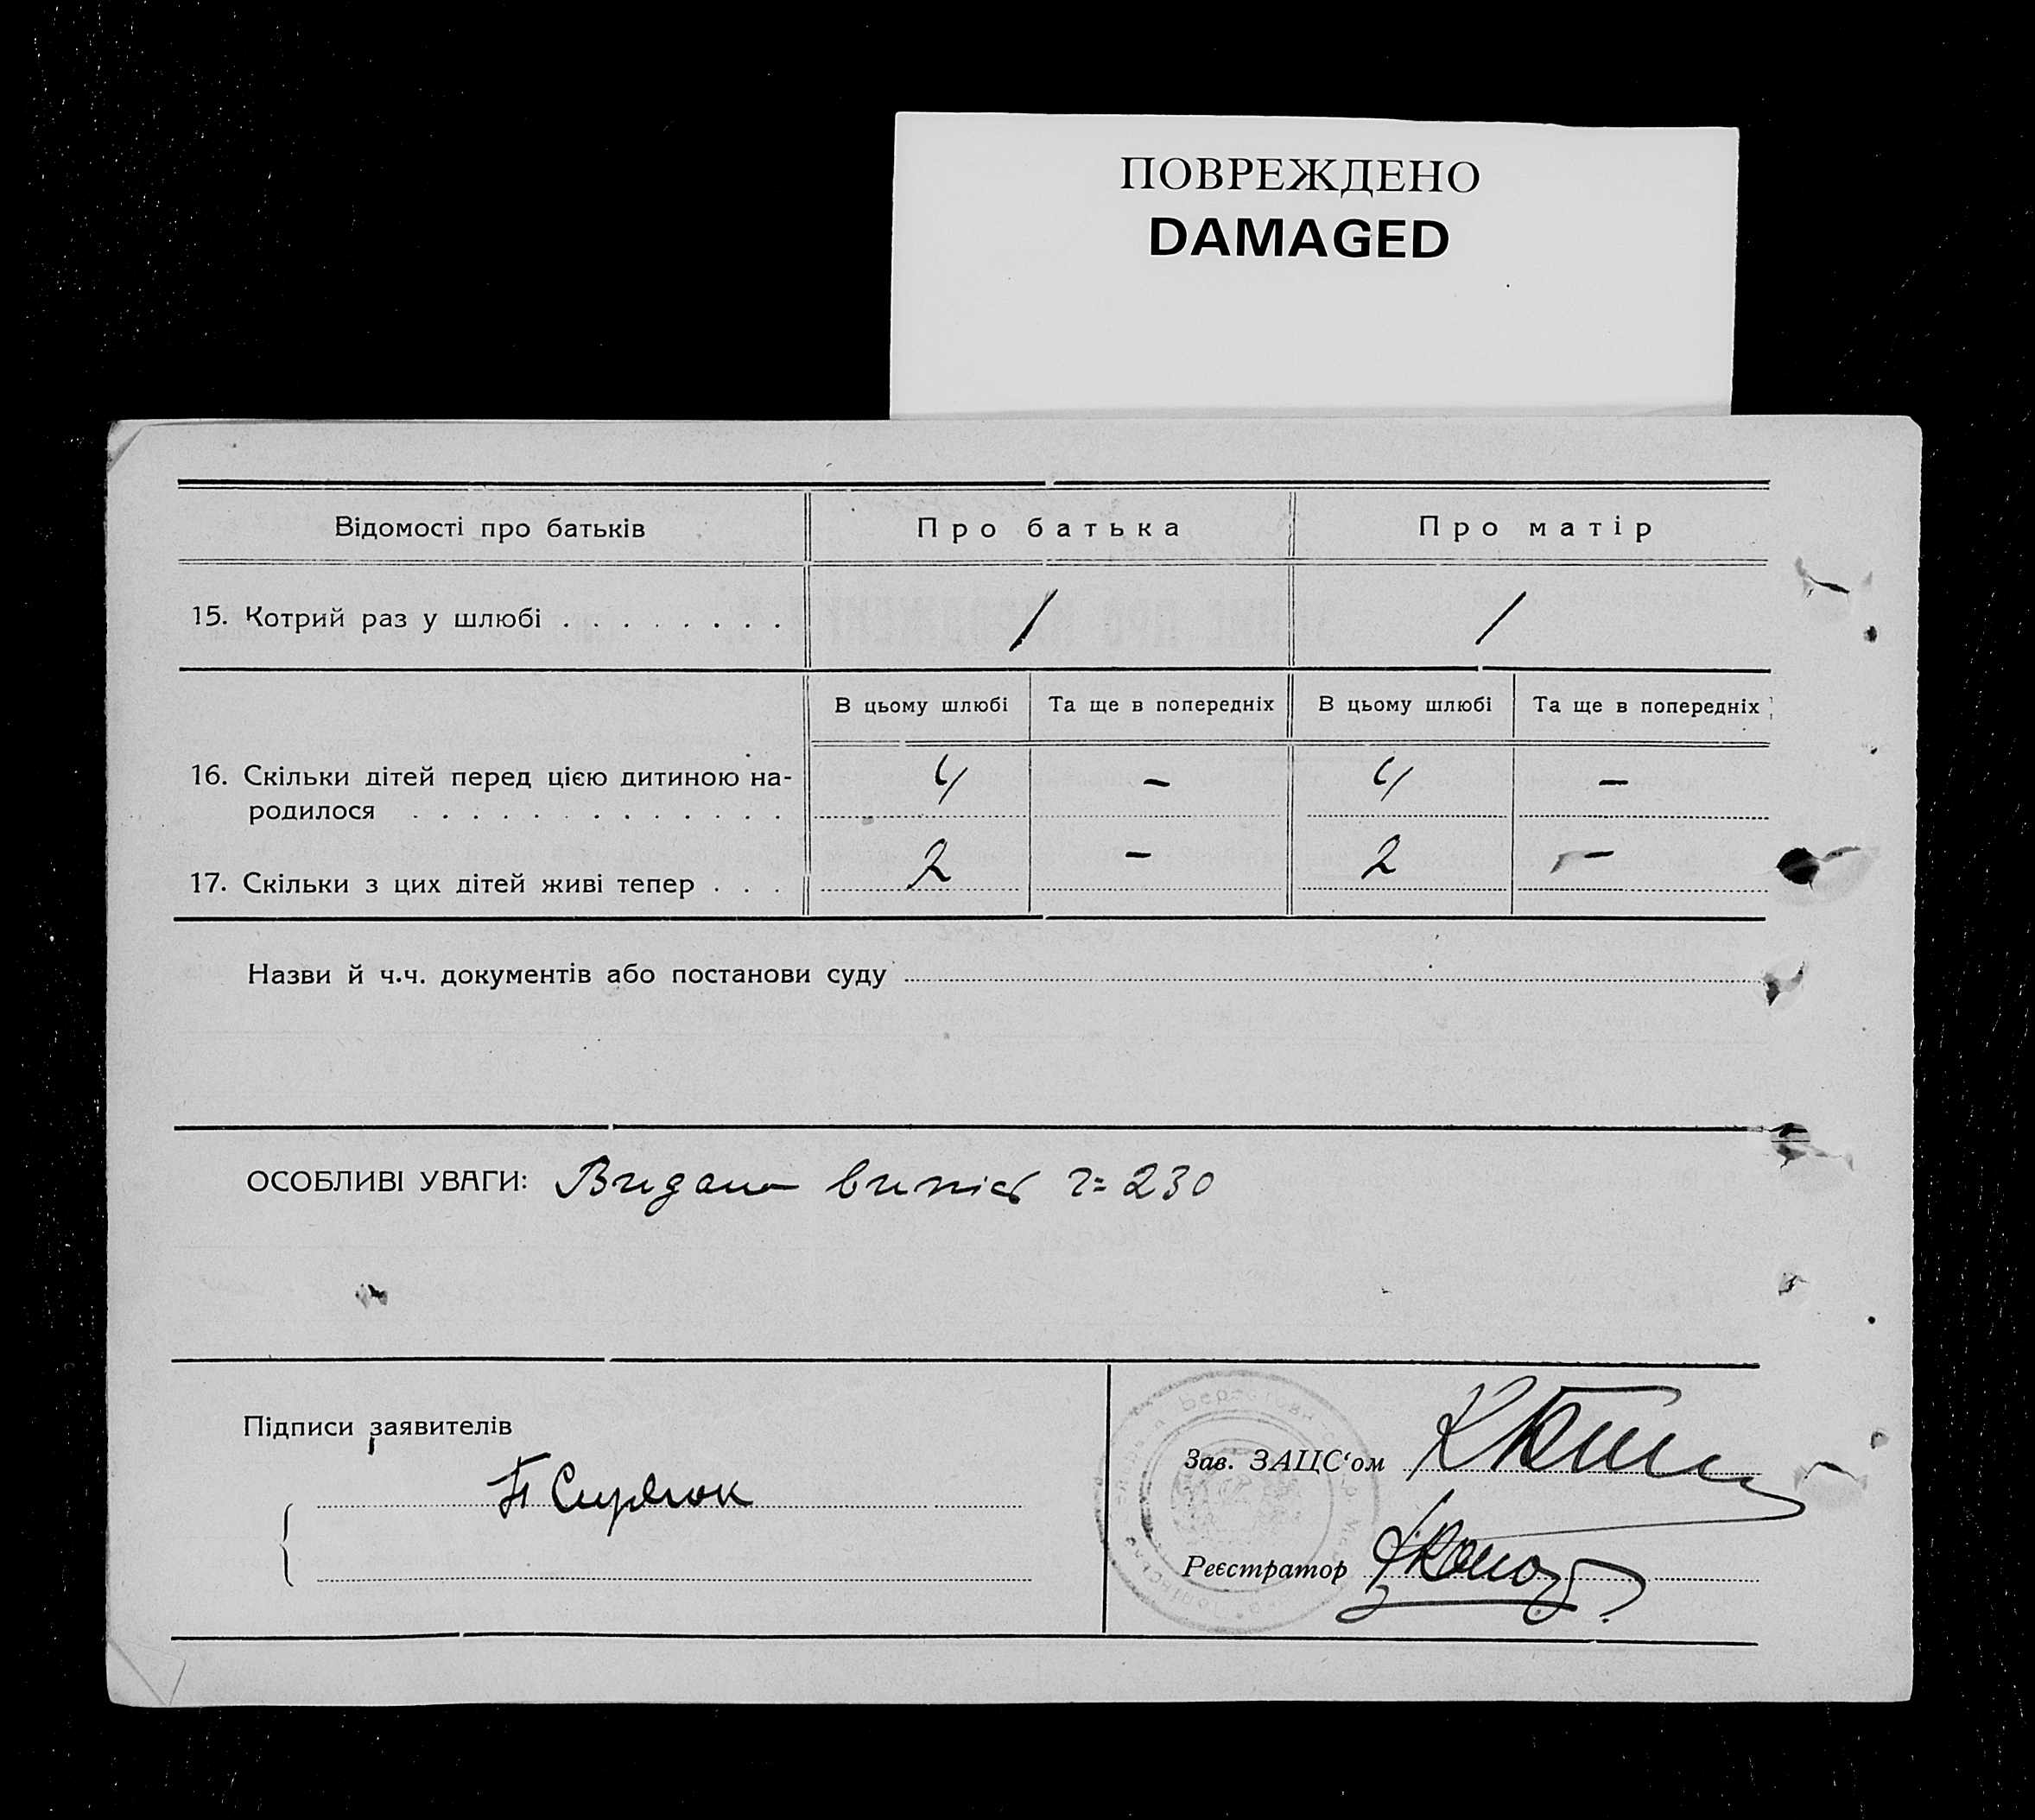 ПОВРЕЖДЕНО
DAMAGED
Відомості про батьків Про батька Про матір
15. Котрий раз у шлюбі . . . . . . . . 1 1
В цьому шлюбі Та ще в попередніх В цьому шлюбі Та ще в попередніх
16. Скільки дітей перед цією дитиною на- 4 – 4 –
родилося . . . . . . . . . . . . .
17. Скільки з цих дітей живі тепер . . . 2 – 2 –
Назви й ч.ч. документів або постанови суду
ОСОБЛИВІ УВАГИ: Видано випис 230
Підписи заявителів
Зав. ЗАЦС‘ом
Реєстратор